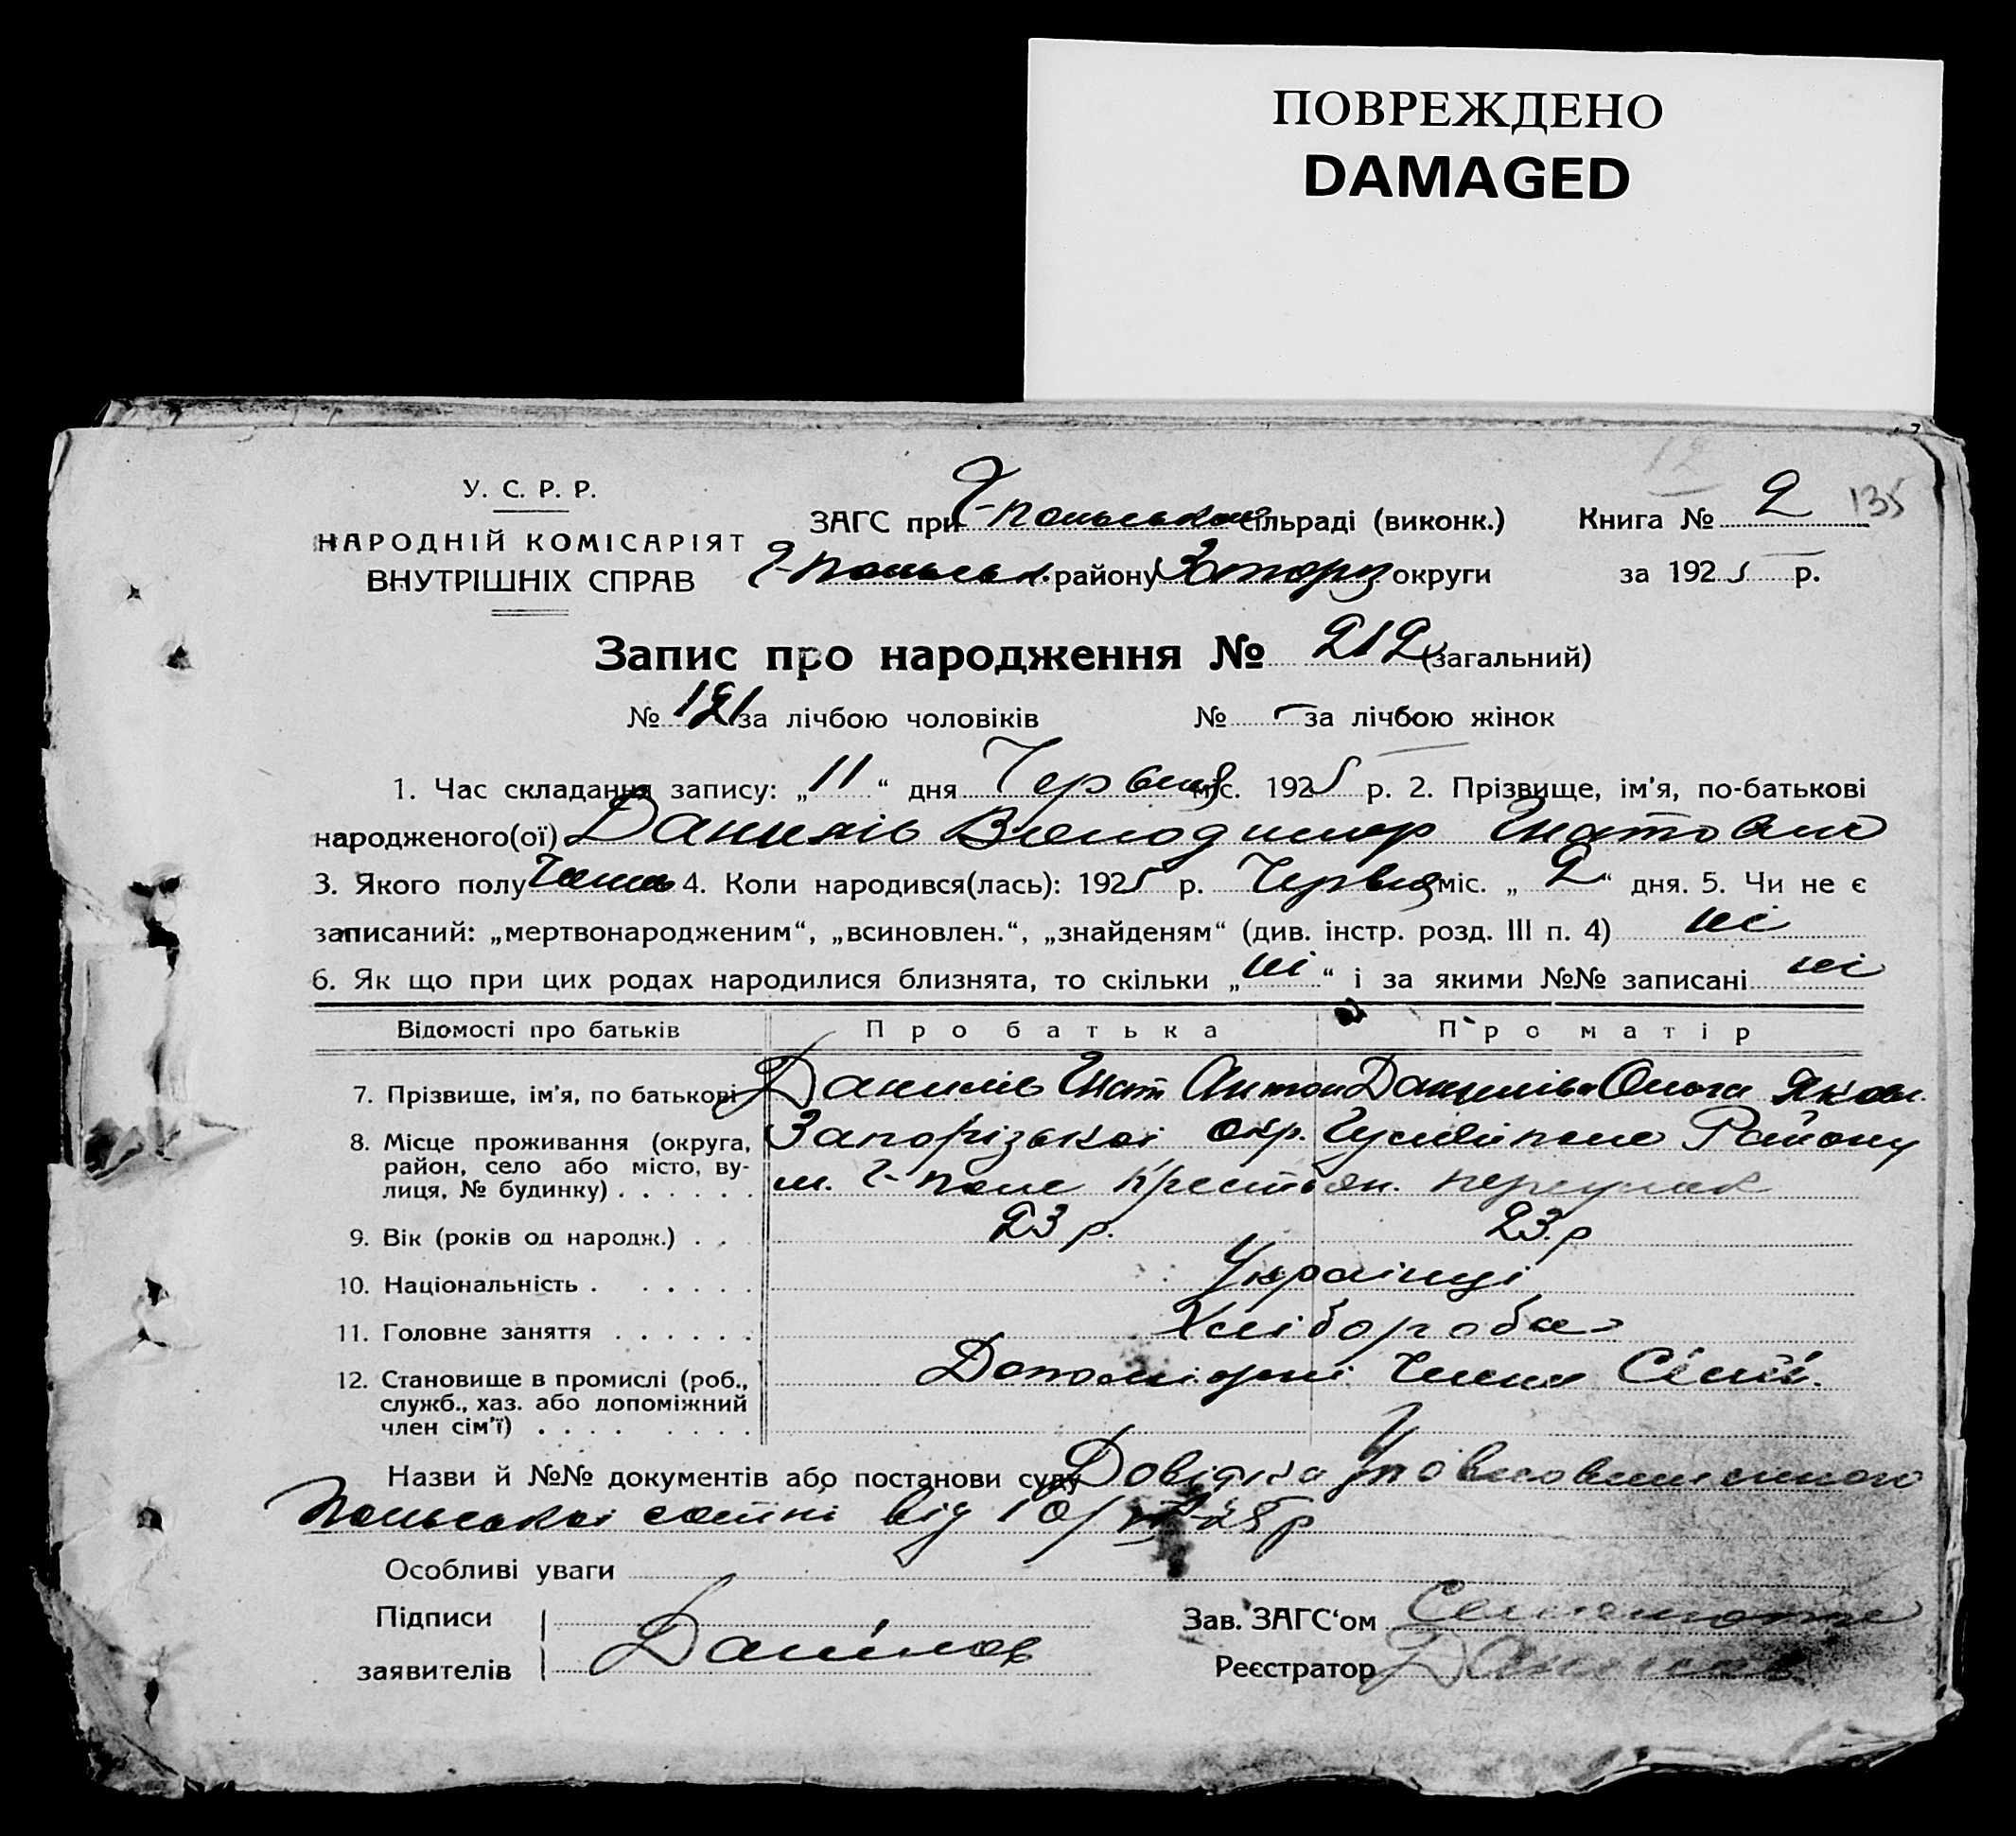 ПОВРЕЖДЕНО
DAMAGED
12
У. С. Р. Р.
НАРОДНІЙ КОМІСАРІЯТ
ВНУТРІШНІХ СПРАВ
ЗАГС при Г-польской сільраді (виконк.) Книга № 2 135
Г-польськ. району Запоріз округи за 1925 р.
Запис про народження № 212 (загальний)
№ 121 за лічбою чоловіків № - за лічбою жінок
1. Час складання запису: „11“ дня Червня міс. 1925 р. 2. Прізвище, ім'я, по-батькові
народженого(ої) Данилів Володимир Гнатович
3. Якого полу 4. Коли народився(лась): 1925 р. Червня міс. „2“ дня. 5. Чи не є
записаний: „мертвонародженим“, „всиновлен.“, „знайденям“ (див. інстр. розд. III п. 4) ні
6. Як що при цих родах народилися близнята, то скільки „ні“ і за якими №№ записані ні
Відомості про батьків Про батька Про матір
7. Прізвище, ім'я, по батькові Данилів Гнат Антон Данилів Ольга Яковл.
8. Місце проживання (округа, район, село або місто, вулиця, № будинку) Запорізької окр. Гуляйполе Району
м. Г-поле Крестьян. переулак
9. Вік (років од народж.) 23 р. 23 р
10. Національність Українці
11. Головне заняття Хлібороба
12. Становище в промислі (роб., служб., хаз. або допоміжний член сім'ї) Допоміжні Члени Сімї.
Назви й №№ документів або постанови суду Довідка Уповновашеного
Польської сотні від 10/VI-25 р
Особливі уваги
Підписи
заявителів Данілов
Зав. ЗАГС'ом
Реєстратор